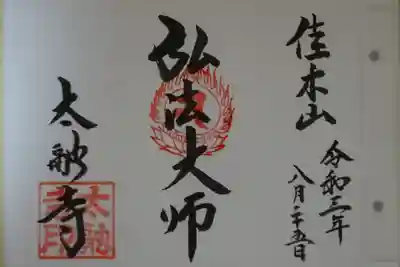 佳木山
令和三年
八月二十五日
弘法大師
太融寺
太融
寺印